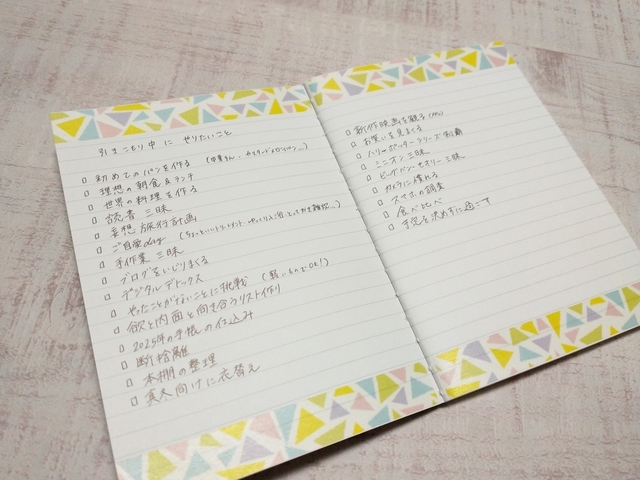 引きこもり中に やりたいこと
□ 初めてのパンを作る
□ 理想の朝食&ランチ
□ 世界の料理を作る
□ 読書三昧
□ 妄想旅行計画
□ ご自愛day
□ 手作業三昧
□ ブログをいじりまくる
□ デジタルデトックス
□ やったことがないことに挑戦 (軽いものでOK!)
□ 欲と内面と向き合うリスト作り
□ 2025年の手帳の仕込み
□ 断捨離
□ 本棚の整理
□ 真冬向けに衣替え
□ 新作映画を観る
□ お笑いを見まくる
□ ハリーポッターシリーズ制覇
□ ミニオン三昧
□ ビッグバン★セオリー三昧
□ カメラに慣れる
□ スマホの調整
□ 食べ比べ
□ 予定を決めずに過ごす